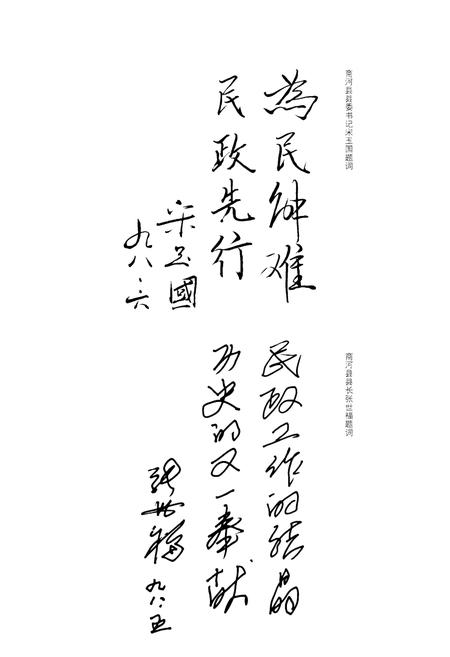 商河县县委书记宋玉国题词
為民解难
民政先行
宋玉國
九八.六
商河县县长张世福题词
民政工作的结晶
历史的又一奉献
张世福
九八.五